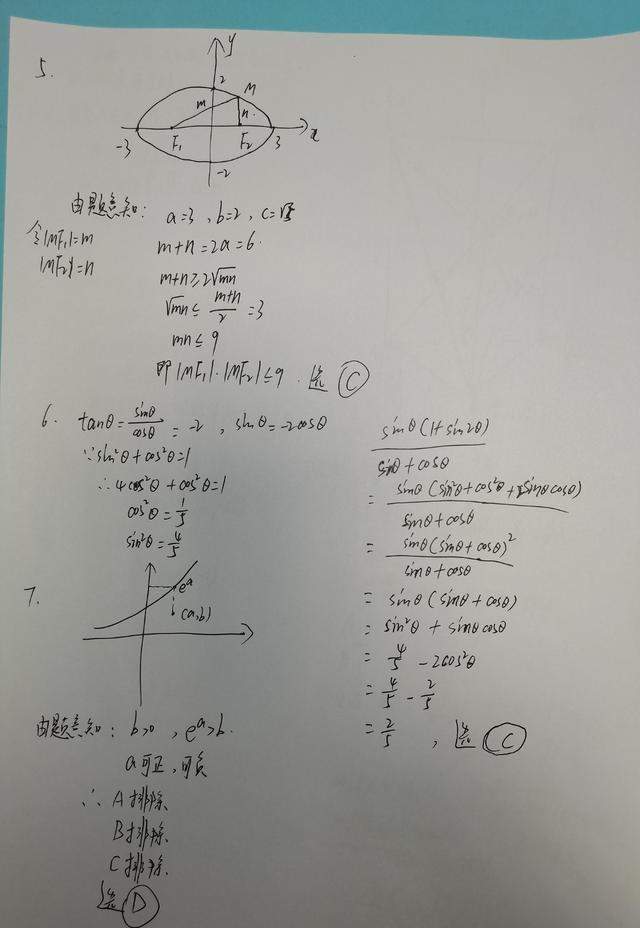 5.
y
2
m
M
n
-3
F₁
F₂
3
x
-2
由题意知: a=3, b=2, c=√5
令|MF₁|=m
|MF₂|=n
m+n=2a=6.
m+n≥2√mn
√mn≤(m+n)/2=3
mn≤9
即|MF₁|·|MF₂|≤9. 选 C
6. tanθ=sinθ/cosθ=-2, sinθ=-2cosθ
∵sin²θ+cos²θ=1
∴4cos²θ+cos²θ=1
cos²θ=1/5
sin²θ=4/5
sinθ(1+sin2θ)/(sinθ+cosθ)
=sinθ(sin²θ+cos²θ+2sinθcosθ)/(sinθ+cosθ)
=sinθ(sinθ+cosθ)²/(sinθ+cosθ)
=sinθ(sinθ+cosθ)
=sin²θ+sinθcosθ
=4/5-2cos²θ
=4/5-2/5
=2/5, 选 C
7.
eᵃ
(a,b)
由题意知: b>0, eᵃ>b.
a可正,可负
∴A排除.
B排除.
C排除.
选 D